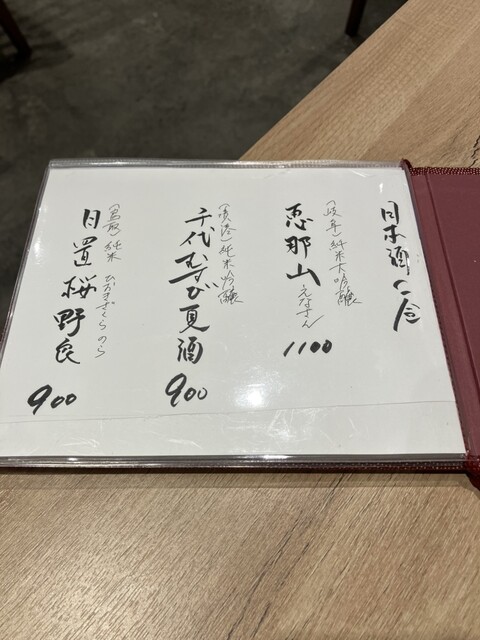 日本酒一合
（岐阜）純米大吟醸
恵那山 えなさん
1100
（境港）純米吟醸
千代むすび夏酒
900
（鳥取）純米 ひおきざくら のら
日置桜 野良
900